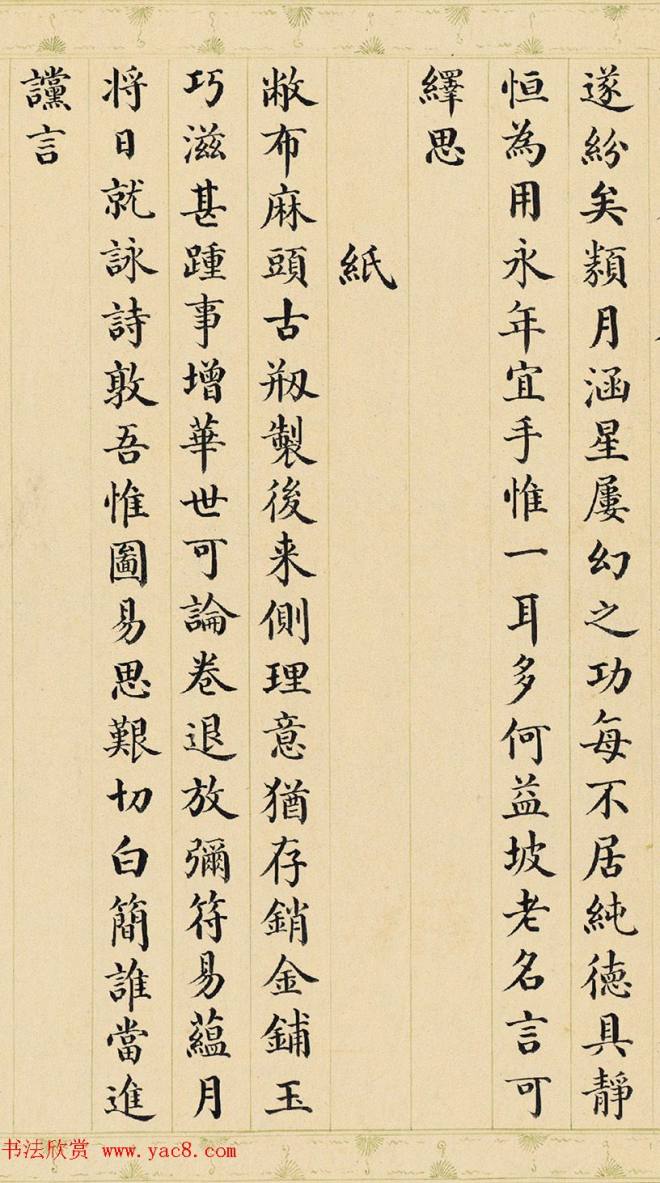 遂紛矣纇月涵星屢幻之功每不居純德具靜
恒為用永年宜手惟一耳多何益坡老名言可
繹思
紙
敝布麻頭古剙製後来側理意猶存銷金鋪玉
巧滋甚踵事增華世可論卷退放彌符易蘊月
将日就詠詩敦吾惟圖易思艱切白簡誰當進
讜言
书法欣赏 www.yac8.com